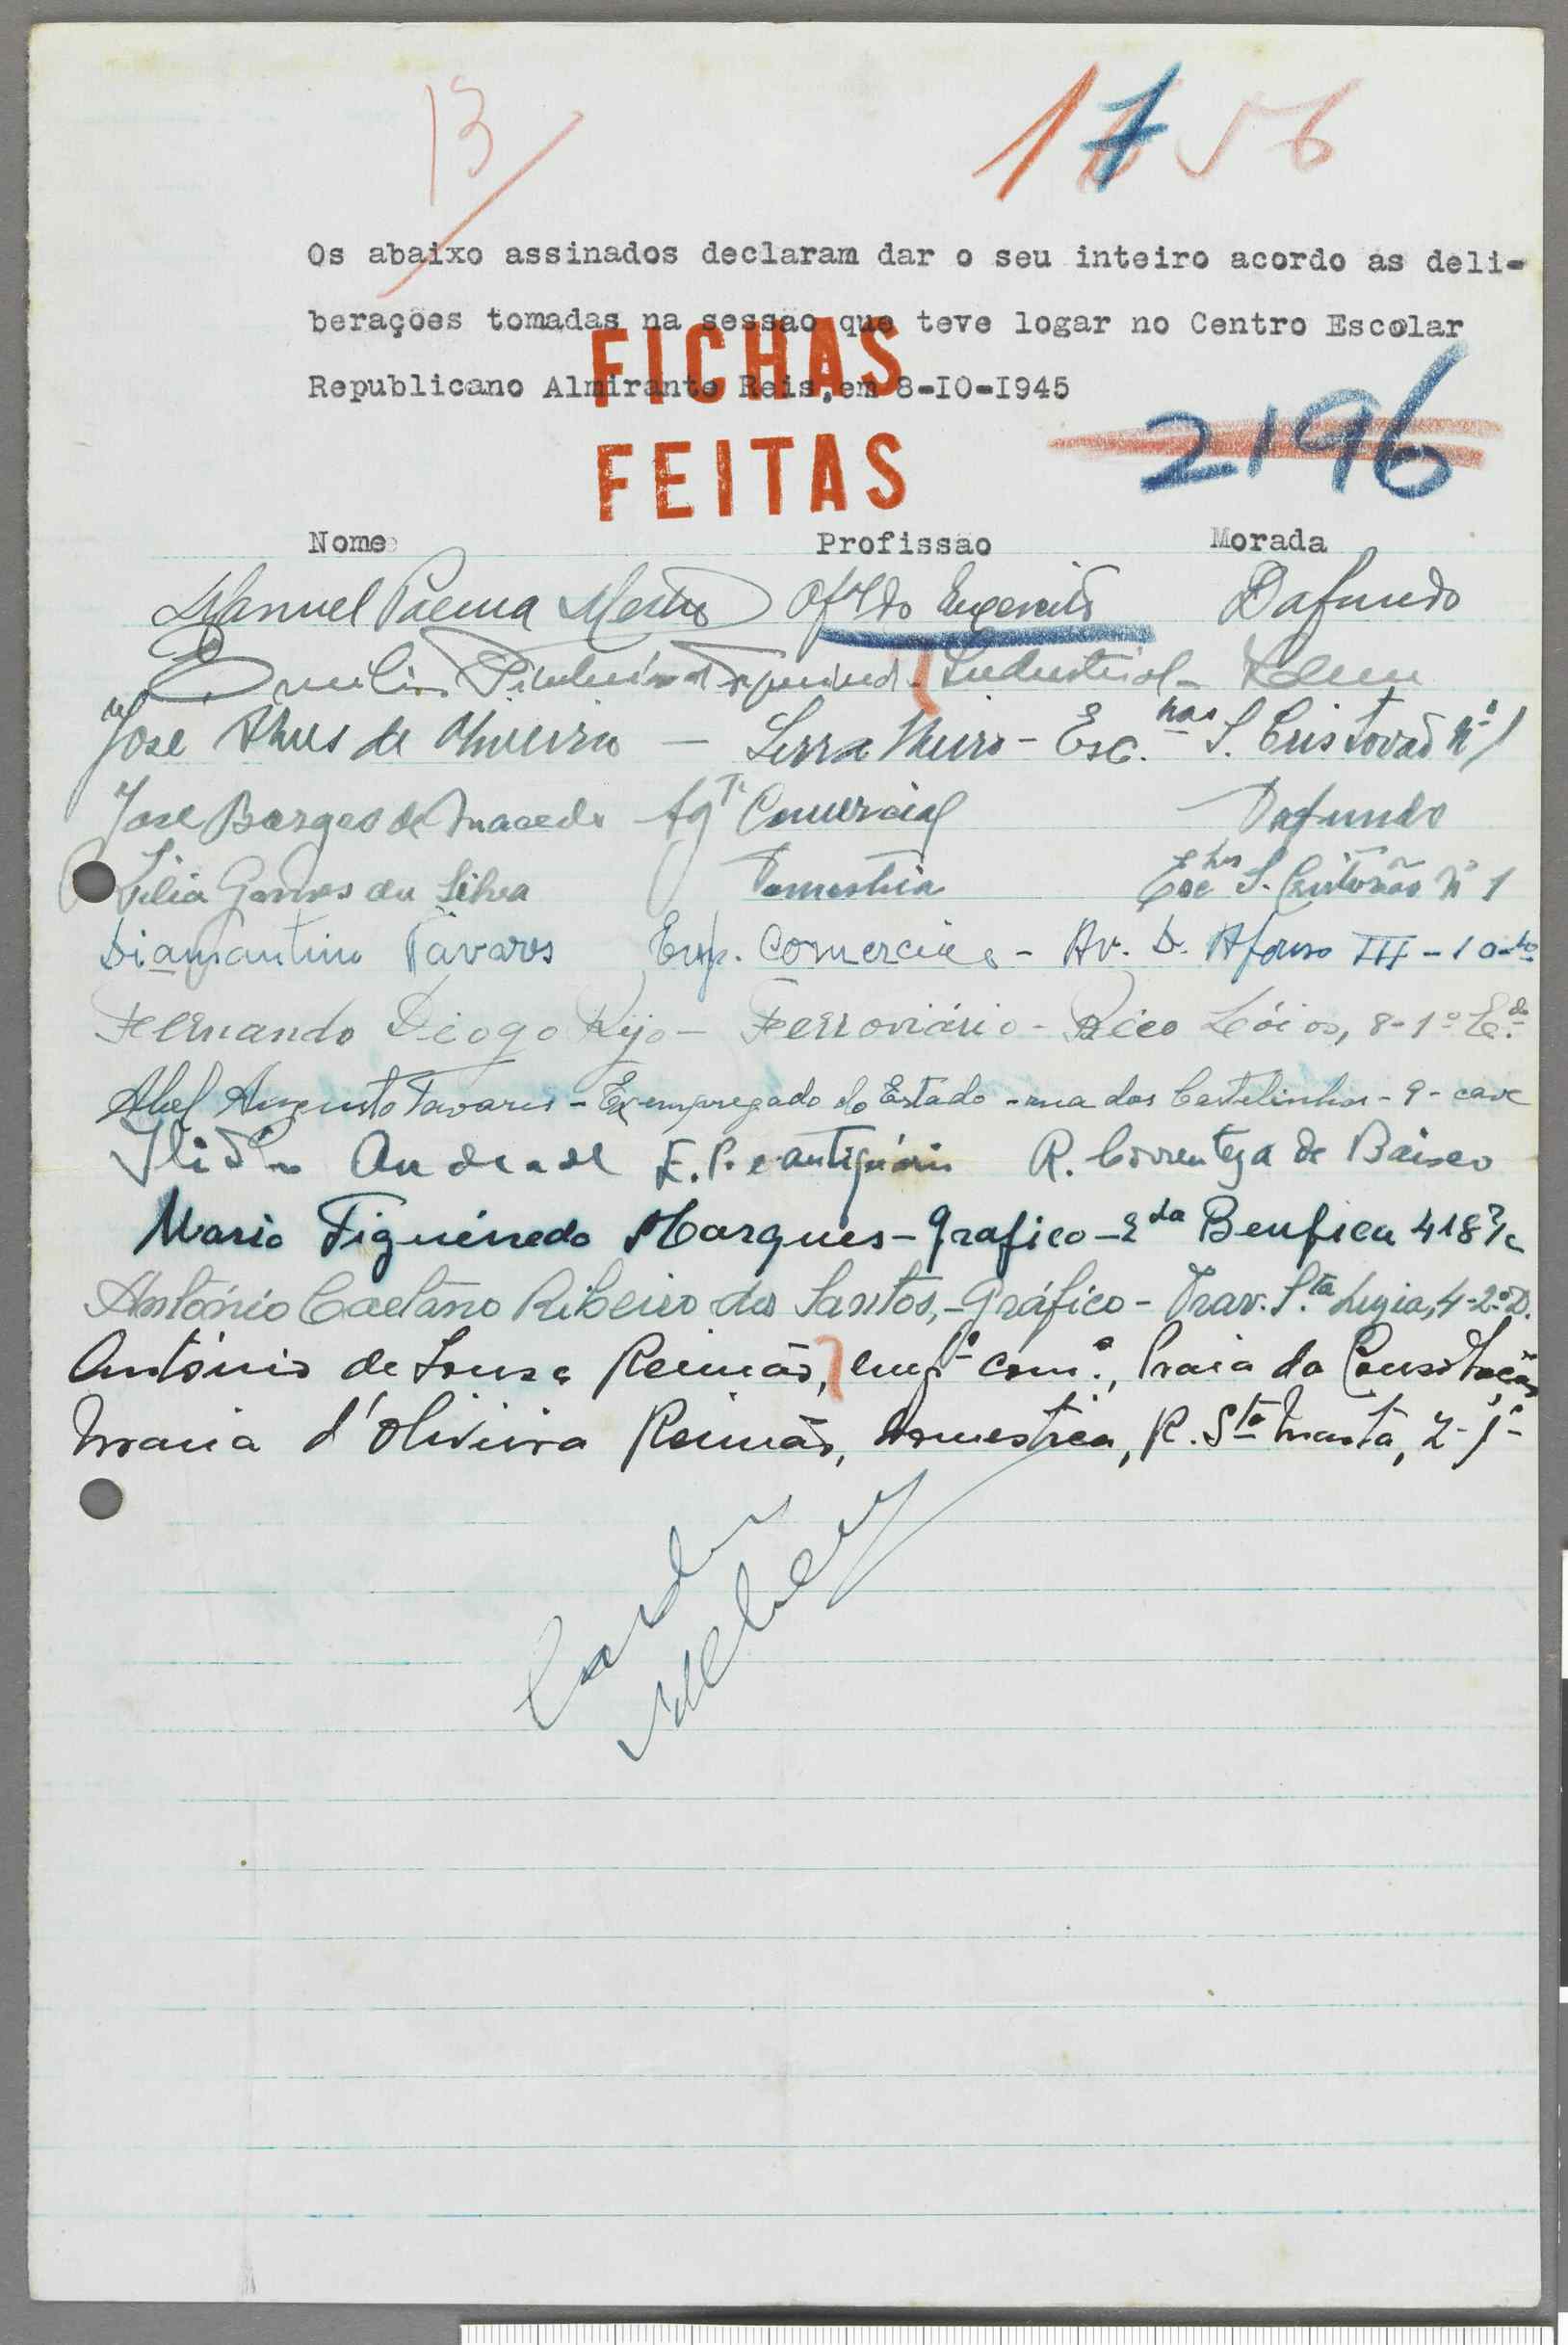 13
17 56
Os abaixo assinados declaram dar o seu inteiro acordo as deli-
berações tomadas na sessão que teve logar no Centro Escolar
Republicano Almirante Reis, em 8-IO-I945
FICHAS
FEITAS
2196
Nome Profissão Morada
Manuel Palma Mestre Ofal do Exercito Dafundo
Industrial - Idem
José Alves de Oliveira - Serralheiro - Esc.nhas S. Cristovão nº 1
José Borges de Macedo Agte Comercial Dafundo
Gomes da Silva Domestica Escnhas S. Cristovão Nº 1
Diamantino Tavares Emp. Comercial - Av. D. Afonso III - 10
Fernando Diogo Rijo - Ferroviário - Beco Lóios, 8-1º E.do
Abel Augusto Tavares - Ex empregado do Estado - rua dos Castelinhos - 9 - cave
Ilidio Andrade E. P. e antiquário R. Correnteza de Baixo
Mario Figueiredo Marques - Grafico - Eda Benfica 418 r/c
António Caetano Ribeiro dos Santos, - Gráfico - Trav. S.ta Luzia, 4-2º D.
António de Sousa Reimão, empº comº, Praia da Consolação
Maria d'Oliveira Reimão, domestica, R. Sta Marta, 2-1º-